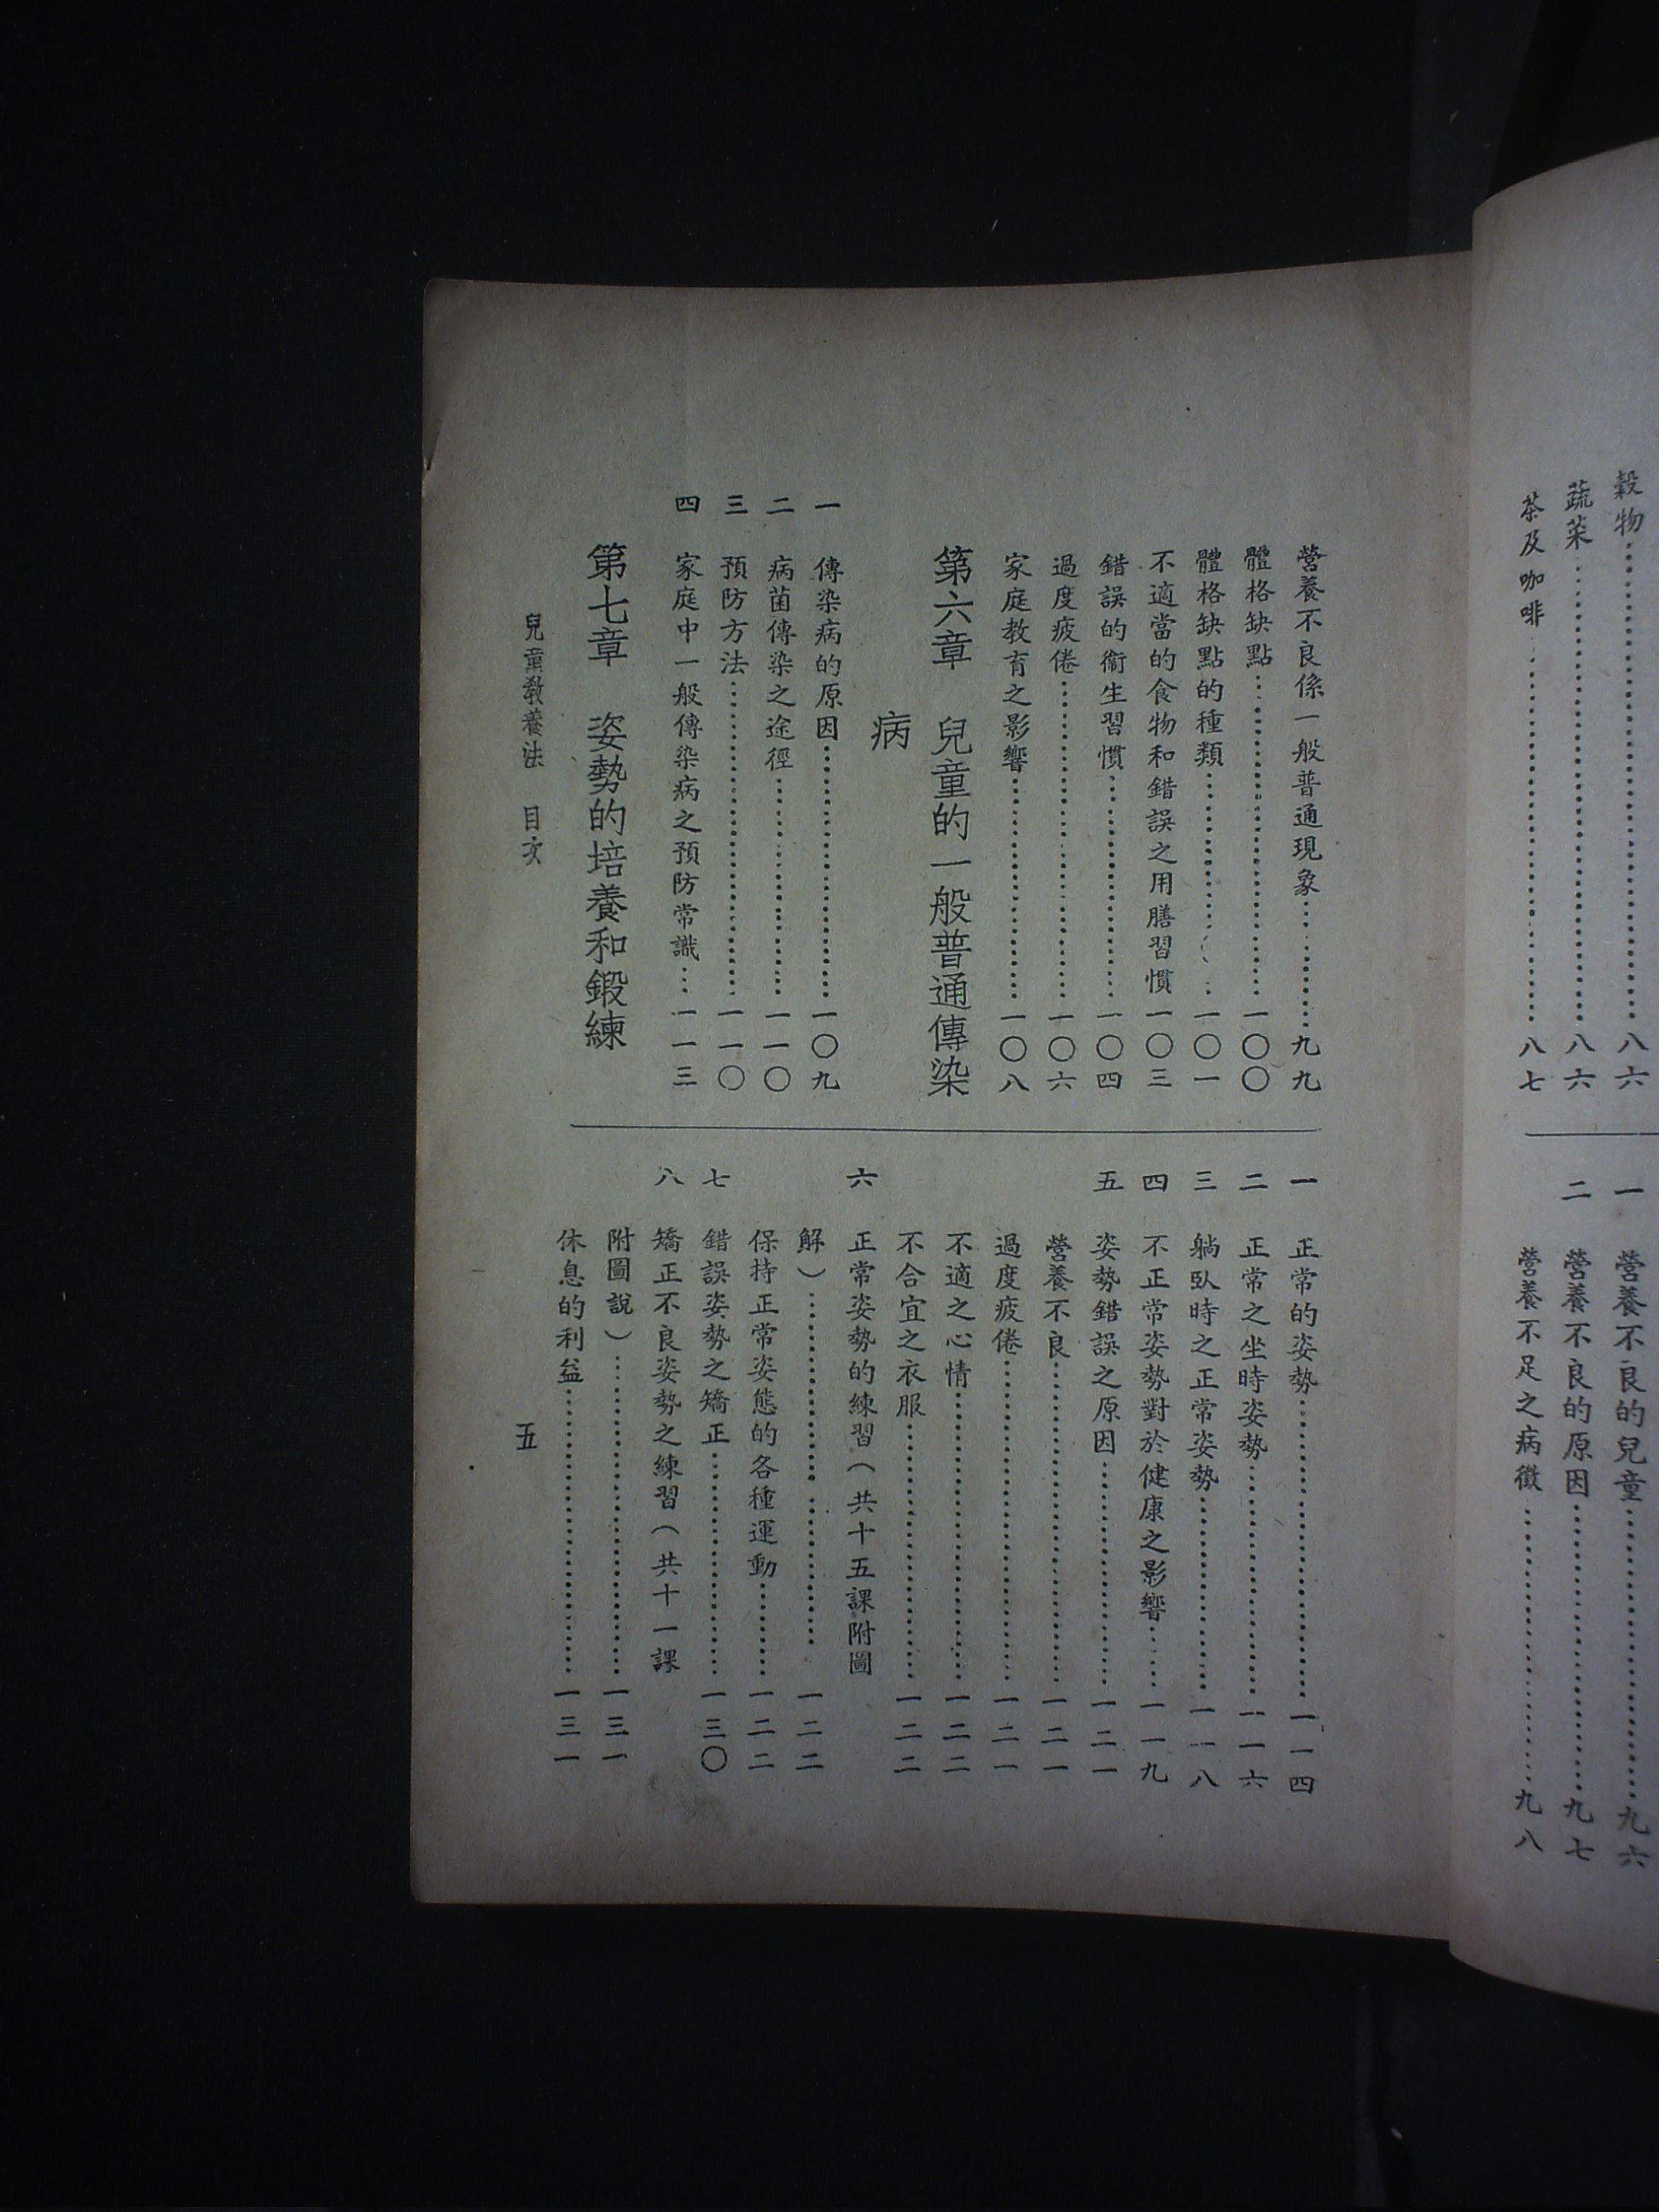 穀物⋯⋯八六
蔬菜⋯⋯八六
茶及咖啡⋯⋯八七
一 營養不良的兒童⋯⋯九六
二 營養不良的原因⋯⋯九七
營養不足之病徵⋯⋯九八
營養不良係一般普通現象⋯⋯九九
體格缺點⋯⋯一〇〇
體格缺點的種類⋯⋯一〇一
不適當的食物和錯誤之用膳習慣 一〇三
錯誤的衞生習慣⋯⋯一〇四
過度疲倦⋯⋯一〇六
家庭教育之影響⋯⋯一〇八
第六章 兒童的一般普通傳染
病
一 傳染病的原因⋯⋯一〇九
二 病菌傳染之途徑⋯⋯一一〇
三 預防方法⋯⋯一一〇
四 家庭中一般傳染病之預防常識⋯一一三
第七章 姿勢的培養和鍛練
一 正常的姿勢⋯⋯一一四
二 正常之坐時姿勢⋯⋯一一六
三 躺臥時之正常姿勢⋯⋯一一八
四 不正常姿勢對於健康之影響⋯⋯一一九
五 姿勢錯誤之原因⋯⋯一二一
營養不良⋯⋯一二一
過度疲倦⋯⋯一二一
不適之心情⋯⋯一二二
不合宜之衣服⋯⋯一二二
六 正常姿勢的練習(共十五課附圖
解)⋯⋯一二二
保持正常姿態的各種運動⋯⋯一二二
七 錯誤姿勢之矯正⋯⋯一三〇
八 矯正不良姿勢之練習(共十一課
附圖說)⋯⋯一三一
休息的利益⋯⋯一三一
兒童教養法 目次
五